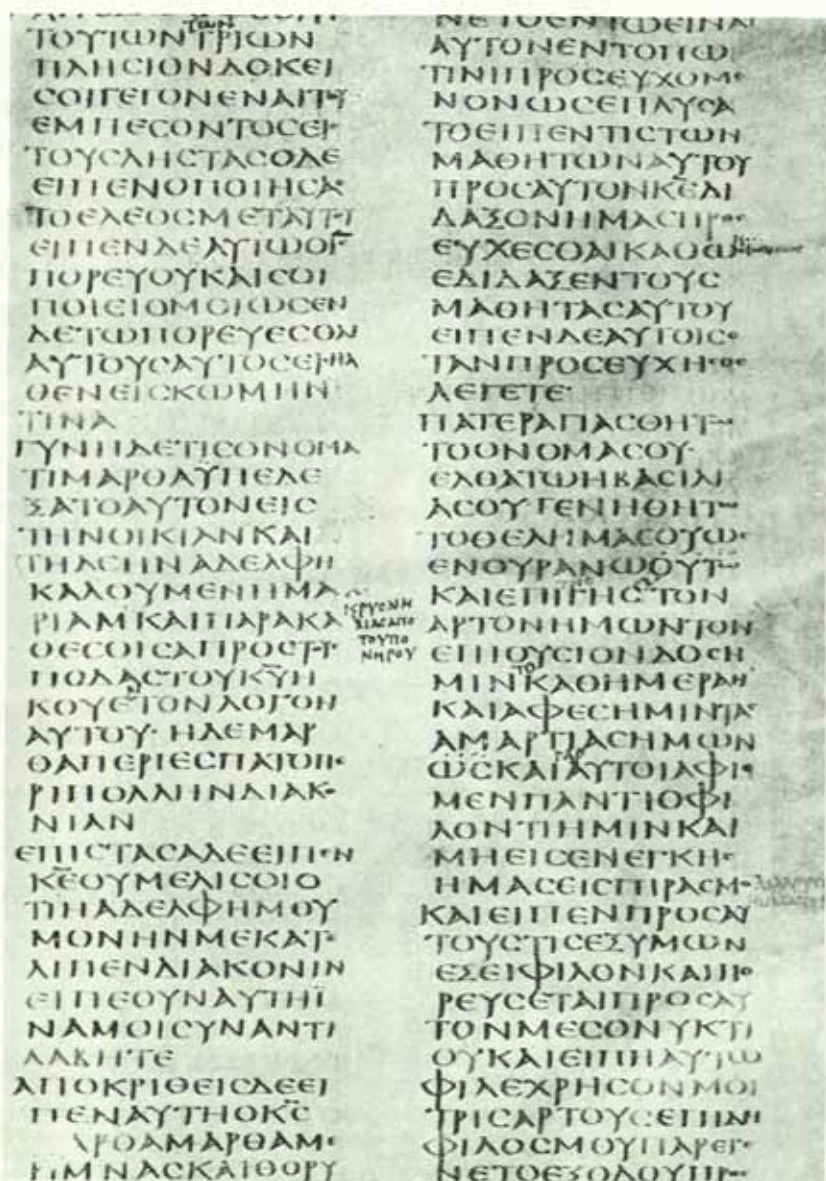 ΤΟΥΤΩΝΤΩΝΤΡΙΩΝ
ΠΛΗCΙΟΝΔΟΚΕΙ
CΟΙΓΕΓΟΝΕΝΑΙΤΟΥ
ΕΜΠΕCΟΝΤΟCΕΙC
ΤΟΥCΛΗCΤΑCΟΔΕ
ΕΙΠΕΝΟΠΟΙΗCΑC
ΤΟΕΛΕΟCΜΕΤΑΥΤΟΥ
ΕΙΠΕΝΔΕΑΥΤΩΟΙC
ΠΟΡΕΥΟΥΚΑΙCΟΙ
ΠΟΙΕΙΟΜΟΙΩCΕΝ
ΔΕΤΩΠΟΡΕΥΕCΘΑΙ
ΑΥΤΟΥCΑΥΤΟCΕΙCΗΛ
ΘΕΝΕΙCΚΩΜΗΝ
ΤΙΝΑ
ΓΥΝΗΔΕΤΙCΟΝΟΜΑ
ΤΙΜΑΡΘΑΥΠΕΔΕ
ΞΑΤΟΑΥΤΟΝΕΙC
ΤΗΝΟΙΚΙΑΝΚΑΙ
ΤΗΔΕΗΝΑΔΕΛΦΗ
ΚΑΛΟΥΜΕΝΗΜΑ
ΡΙΑΜΚΑΙΠΑΡΑΚΑ
ΘΕCΘΙCΑΠΡΟCΤΟΥC
ΠΟΔΑCΤΟΥΚΥΗ
ΚΟΥΕΤΟΝΛΟΓΟΝ
ΑΥΤΟΥ· ΗΔΕΜΑΡ
ΘΑΠΕΡΙΕCΠΑΤΟΠΕ
ΡΙΠΟΛΛΗΝΔΙΑΚΟ
ΝΙΑΝ
ΕΠΙCΤΑCΑΔΕΕΙΠΕΝ
ΚΕΟΥΜΕΛΙCΟΙΟ
ΤΙΗΑΔΕΛΦΗΜΟΥ
ΜΟΝΗΝΜΕΚΑΤΕ
ΛΙΠΕΝΔΙΑΚΟΝΙΝ
ΕΙΠΕΟΥΝΑΥΤΗΪ
ΝΑΜΟΙCΥΝΑΝΤΙ
ΛΑΒΗΤΕ
ΑΠΟΚΡΙΘΕΙCΔΕΕΙ
ΠΕΝΑΥΤΗΟΚC
ΜΑΡΘΑΜΑΡΘΑΜΕ
ΡΙΜΝΑCΚΑΙΘΟΡΥ
ΜΑCΑΠΟ
ΤΟΥΠΟ
ΝΗΡΟΥ
ΝΕΤΟΕΝΤΩΕΙΝΑΙ
ΑΥΤΟΝΕΝΤΟΠΩ
ΤΙΝΙΠΡΟCΕΥΧΟΜΕ
ΝΟΝΩCΕΠΑΥCΑ
ΤΟΕΙΠΕΝΤΙCΤΩΝ
ΜΑΘΗΤΩΝΑΥΤΟΥ
ΠΡΟCΑΥΤΟΝΚΕΔΙ
ΔΑΞΟΝΗΜΑCΠΡΟC
ΕΥΧΕCΘΑΙΚΑΘΩC
ΕΔΙΔΑΞΕΝΤΟΥC
ΜΑΘΗΤΑCΑΥΤΟΥ
ΕΙΠΕΝΔΕΑΥΤΟΙCΟ
ΤΑΝΠΡΟCΕΥΧΗCΘΕ
ΛΕΓΕΤΕ·
ΠΑΤΕΡΑΓΙΑCΘΗΤΩ
ΤΟΟΝΟΜΑCΟΥ·
ΕΛΘΑΤΩΗΒΑCΙΛΙ
ΑCΟΥΓΕΝΗΘΗΤΩ
ΤΟΘΕΛΗΜΑCΟΥΩC
ΕΝΟΥΡΑΝΩΟΥΤΩ
ΚΑΙΕΠΙΓΗCΤΟΝ
ΑΡΤΟΝΗΜΩΝΤΟΝ
ΕΠΙΟΥCΙΟΝΔΟCΗ
ΜΙΝΤΟΚΑΘΗΜΕΡΑΝ
ΚΑΙΑΦΕCΗΜΙΝΤΑC
ΑΜΑΡΤΙΑCΗΜΩΝ
ΩCΚΑΙΓΑΡΑΥΤΟΙΑΦΙΟ
ΜΕΝΠΑΝΤΙΟΦΙ
ΛΟΝΤΙΗΜΙΝΚΑΙ
ΜΗΕΙCΕΝΕΓΚΗC
ΗΜΑCΕΙCΠΙΡΑCΜΟ
ΚΑΙΕΙΠΕΝΠΡΟCΑΥ
ΤΟΥCΤΙCΕΞΥΜΩΝ
ΕΞΕΙΦΙΛΟΝΚΑΙΠΟ
ΡΕΥCΕΤΑΙΠΡΟCΑΥ
ΤΟΝΜΕCΟΝΥΚΤΙ
ΟΥΚΑΙΕΙΠΗΑΥΤΩ
ΦΙΛΕΧΡΗCΟΝΜΟΙ
ΤΡΙCΑΡΤΟΥCΕΠΙΔΗ
ΦΙΛΟCΜΟΥΠΑΡΕΓΕ
ΝΕΤΟΕΞΟΔΟΥΠΡΟC